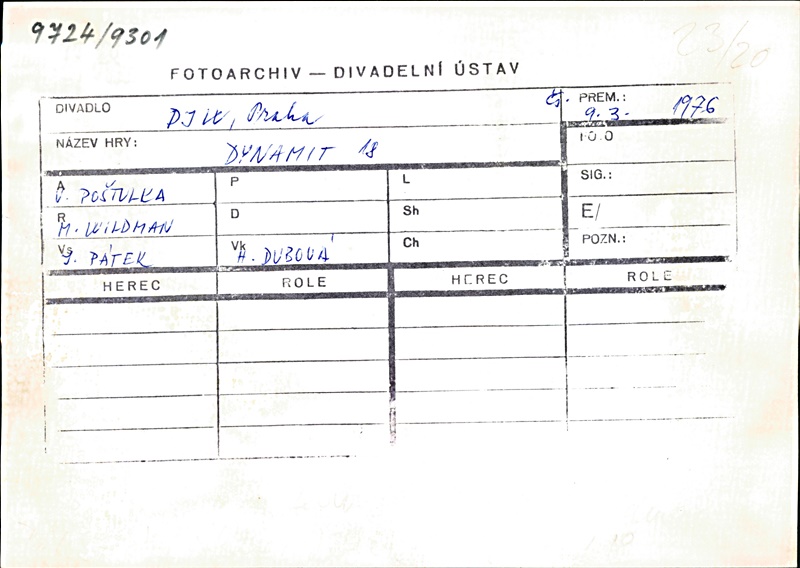 9724/9301
23/20
FOTOARCHIV — DIVADELNÍ ÚSTAV
DIVADLO DJW, Praha
čs. PREM.: 9. 3. 1976
NÁZEV HRY: DYNAMIT 18
FOTO
A V. POŠTULKA P L SIG.:
R M. WILDMAN D Sh E/
Vs J. PÁTEK Vk H. DUBOVÁ Ch POZN.:
HEREC ROLE HEREC ROLE